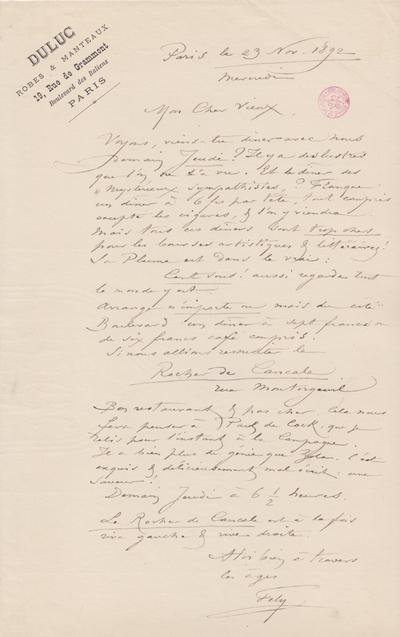 DULUC
ROBES & MANTEAUX
19, Rue de Grammont
Boulevard des Italiens
PARIS
Paris le 23 Nov. 1892
Mercredi
Mon Cher Vieux,
Voyons, viens-tu dîner avec nous
demain Jeudi? Il y a des lustres
que l'on ne t'a vu. Et le dîner des
"Mystérieux sympathistes"?
un dîner à 6 frs par tête, tout compris
compte les cigares, & l'on y viendra.
Mais tous ces dîners sont trop chers
pour les bourses artistiques & littéraires!
La Plume est dans le vrai:
Cent sous! aussi regarde tout
le monde y est.
Arrange n'importe où mais du côté
Boulevard un dîner à sept francs ou
de six francs café compris.
Si nous allions ressusciter le
Rocher de Cancale
rue Montorgueil
Bon restaurant & pas cher. Cela nous
fera penser à Paul de Kock, que je
relis pour l'instant à la Campagne.
Il a bien plus de génie que Zola. C'est
exquis & délicieusement mal écrit: une
saveur!
Demain Jeudi à 6 1/2 heures.
Le Rocher de Cancale est à la fois
rive gauche & rive droite.
A toi bien à travers
les âges
Fély